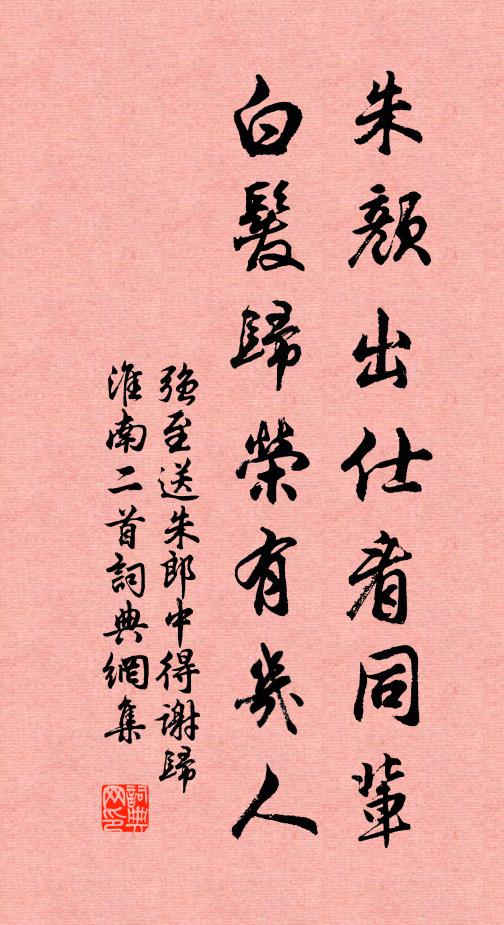 朱顏出仕者同輩
白髮歸榮有幾人
强至送朱郎中得謝歸
淮南二首詞典網集
詞典网印